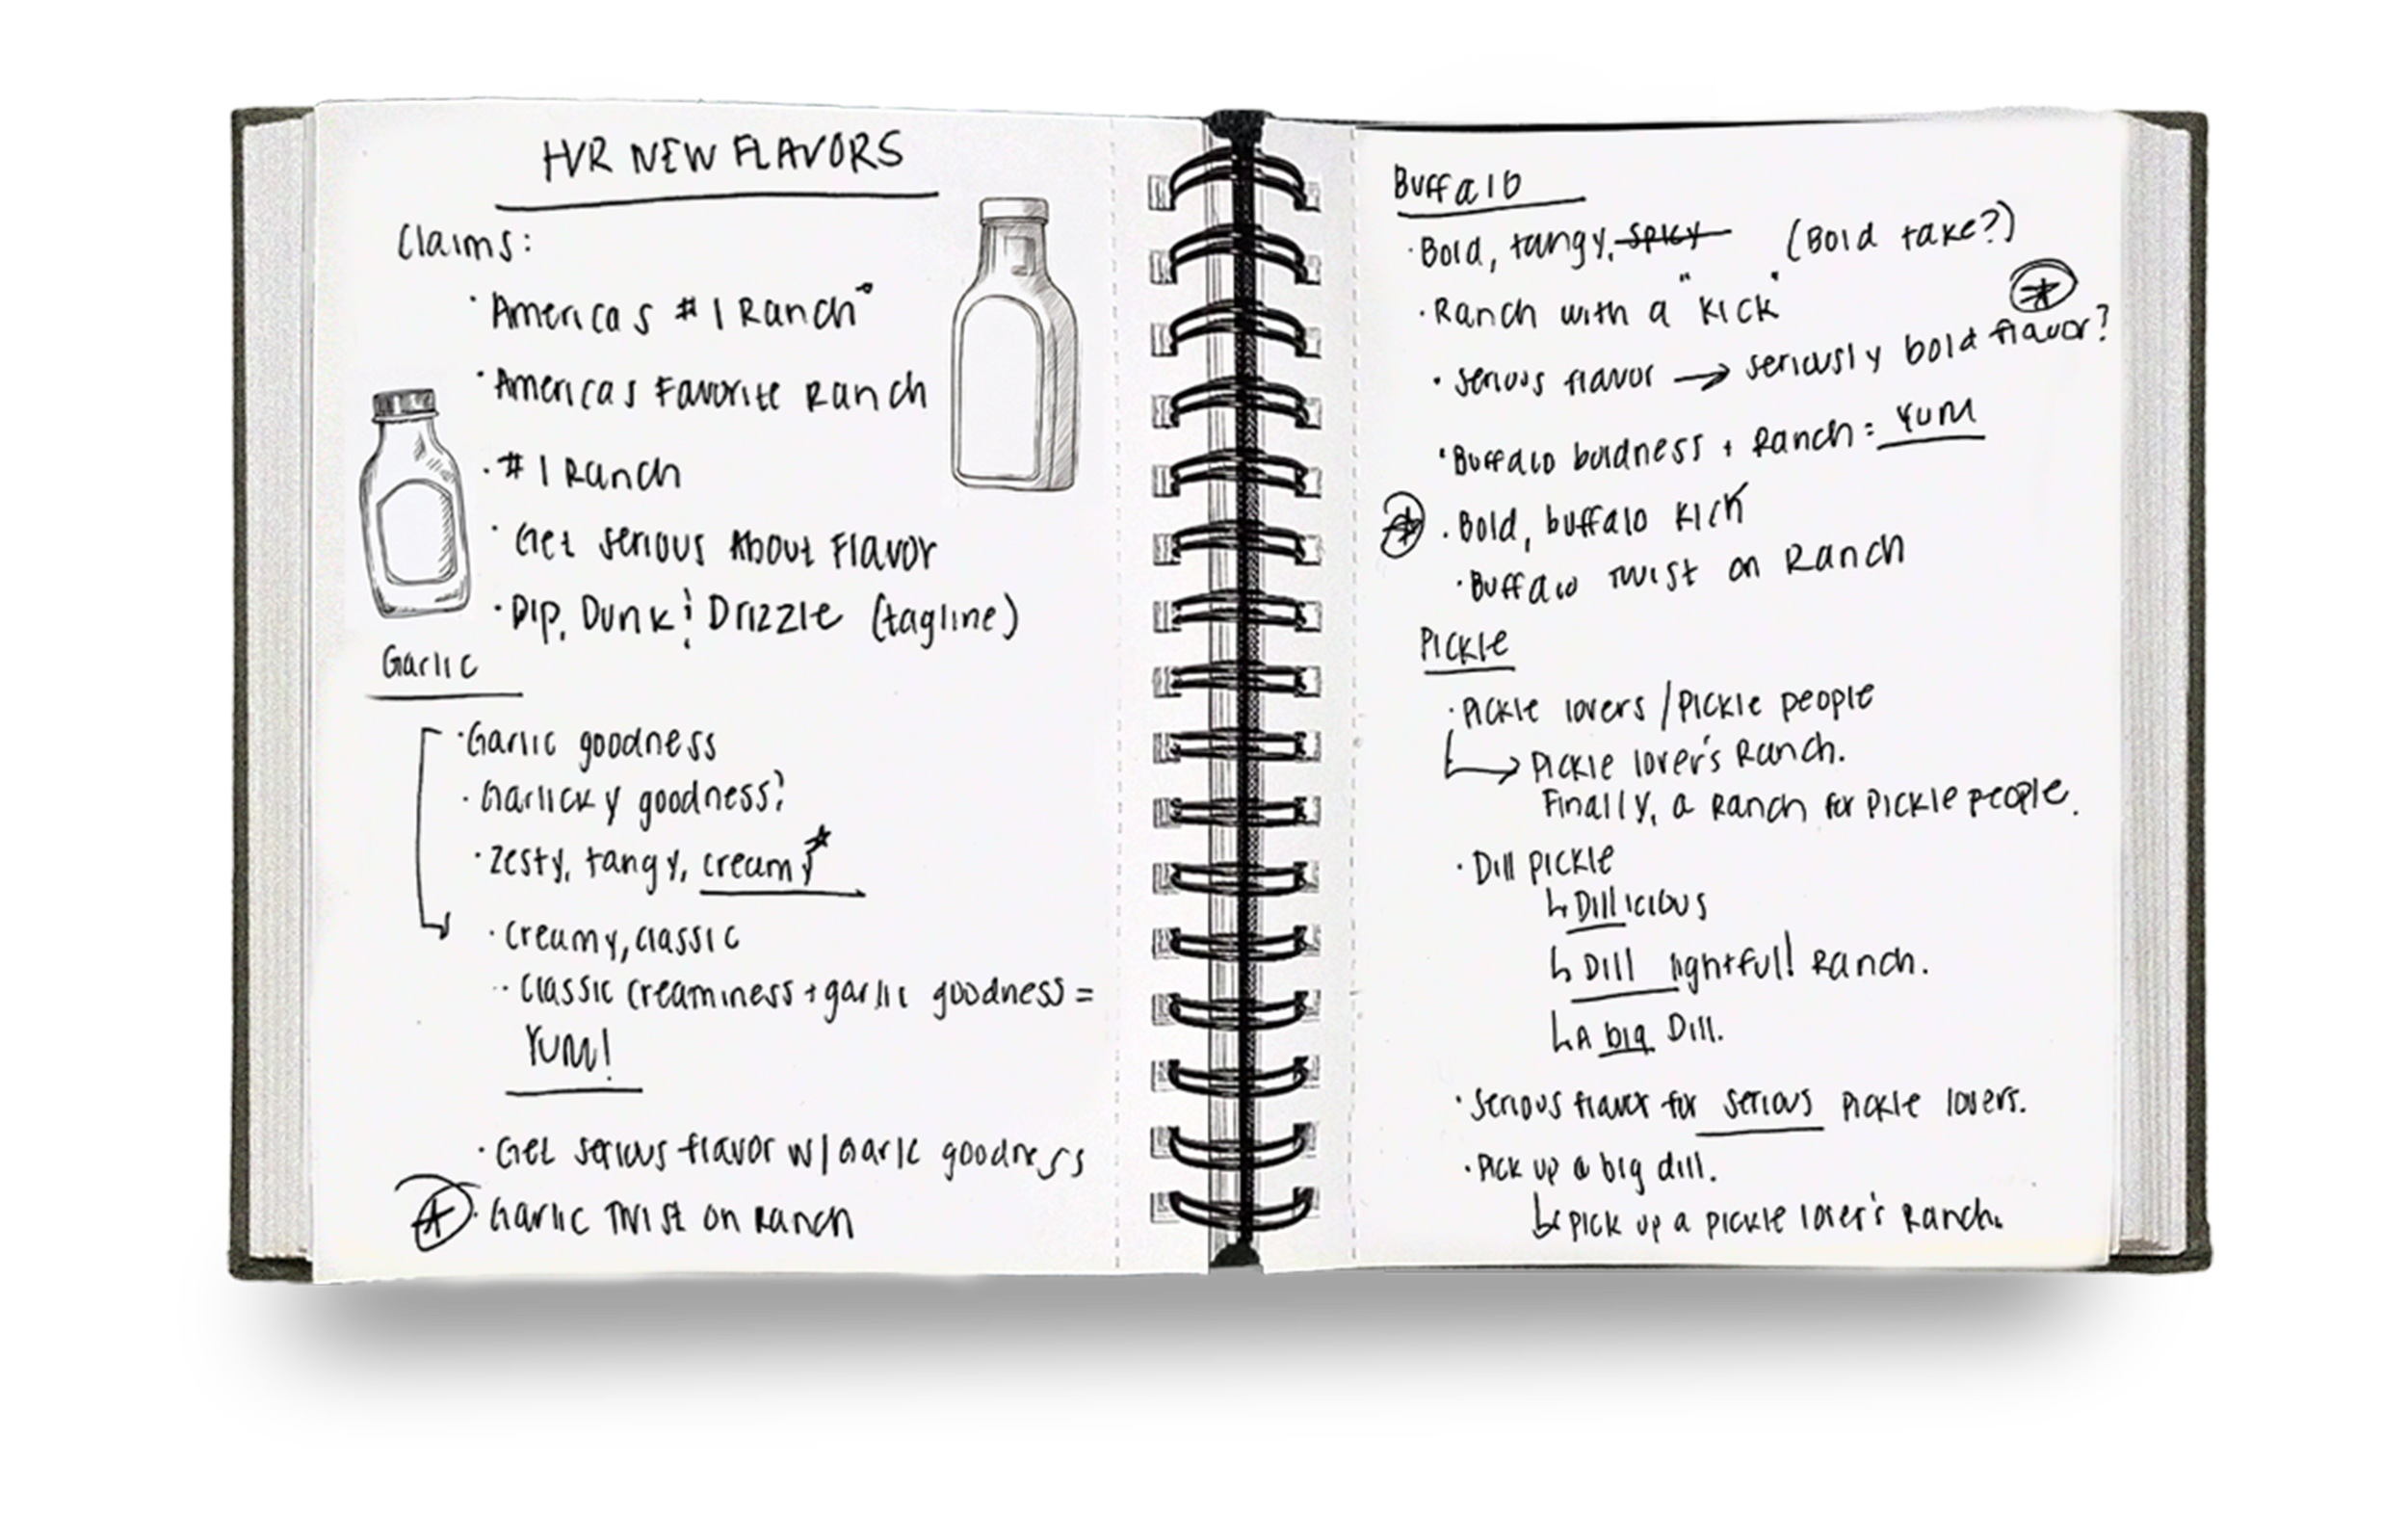 HVR NEW FLAVORS
Claims:
· Americas #1 Ranch
· Americas Favorite Ranch
· #1 Ranch
· Get serious About Flavor
· Dip, Dunk & Drizzle (tagline)
Garlic
· Garlic goodness
· Garlicky goodness?
· Zesty, tangy, creamy*
· Creamy, classic
· Classic creaminess + garlic goodness =
YUM!
· Get serious flavor w/ Garlic goodness
· Garlic Twist on Ranch
Buffalo
· Bold, tangy, spicy (Bold take?)
· Ranch with a "kick"
· serious flavor → seriously bold flavor?
· Buffalo boldness + Ranch = YUM
· Bold, buffalo kick
· Buffalo Twist on Ranch
Pickle
· Pickle lovers / Pickle people
→ Pickle lover's Ranch.
Finally, a Ranch for Pickle people.
· Dill pickle
↳ Dillicious
↳ Dill ightful! Ranch.
↳ A big Dill.
· Serious flavor for serious pickle lovers.
· Pick up a big dill.
↳ Pick up a pickle lover's Ranch.